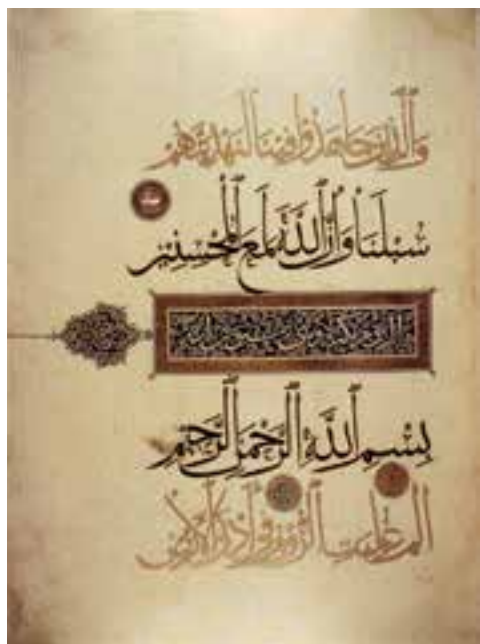 والذين جاهدوا فينا لنهدينهم
سبلنا وإن الله لمع المحسنين
بسم الله الرحمن الرحيم
الم غلبت الروم في أدنى الأرض